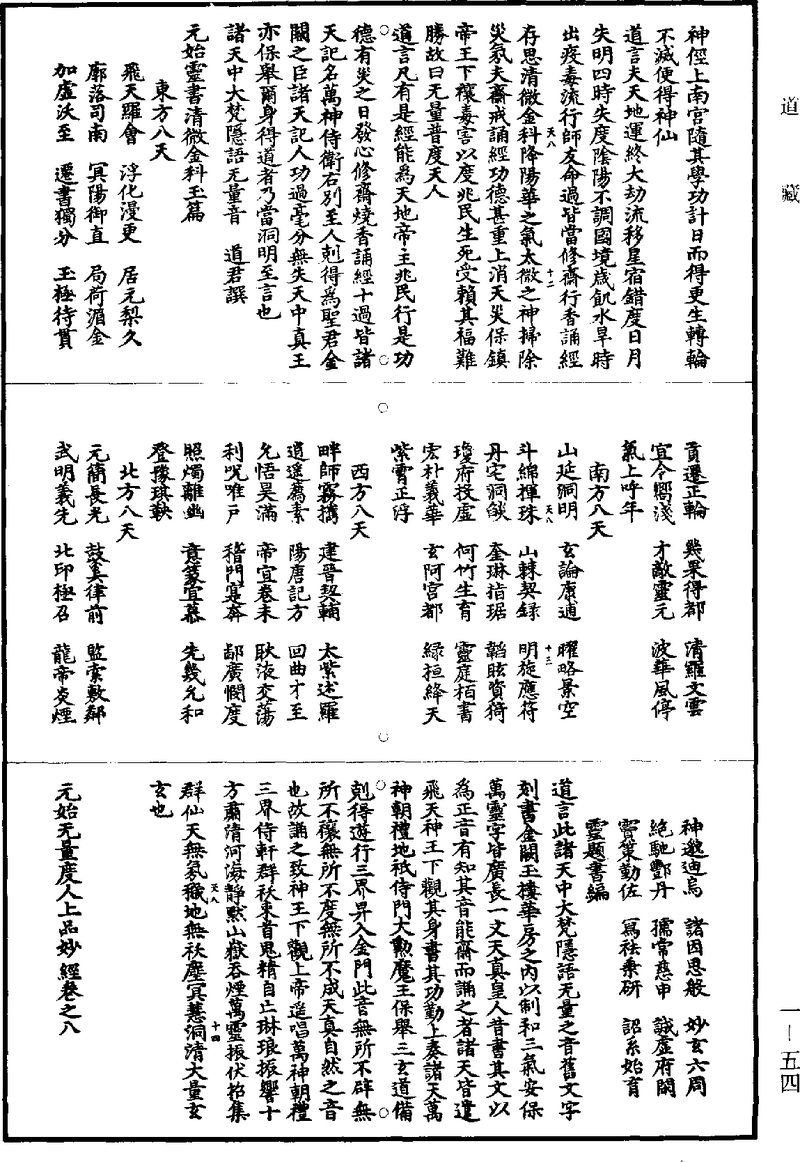 道藏
神徑上南宮隨其學功計日而得更生轉輪
不滅便得神仙
道言夫天地運終大劫流移星宿錯度日月
失明四時失度陰陽不調國境歲飢水旱時
出疫毒流行師友命過皆當修齋行香誦經
天八
十二
存思清微金科降陽華之氣太微之神掃除
災氛夫齋戒誦經功德甚重上消天災保鎮
帝王下禳毒害以度兆民生死受賴其福難
勝故曰无量普度天人
道言凡有是經能為天地帝主兆民行是功
德有災之日發心修齋燒香誦經十過皆諸
天記名萬神侍衛右別至人剋得為聖君金
闕之臣諸天記人功過毫分無失天中真王
亦保舉爾身得道者乃當洞明至言也
諸天中大梵隱語無量音　道君譔
元始靈書清微金科玉篇
東方八天
飛天羅會　浮化漫更　居元梨久
廓落司南　冥陽御直　局荷湄金
加虛沃至　遷書獨分　玉極待貫
貢遷正輪　幾果得都　清羅文雲
宜令嚮淺　才敵靈元　波華風停
氣上呼年
南方八天
山延洞明　玄論康逋　曜略景空
天八
十三
斗綿揮珠　山棘契錄　明旋應符
丹宅洞餤　奎琳指琚　韜眩資猗
瓊府投虛　何竹生育　靈庭栢書
宏朴義華　玄阿宮都　綠桓絳天
紫霄正浮
西方八天
畔師霧攜　建晉契輔　太紫述羅
逍遙蔫素　陽唐記方　回曲才至
允悟昊滿　帝宜卷未　耿液交蕩
利呪唯戶　稽門寔奔　鄢廣憫度
照燭離幽　意篆宜慕　先幾允和
登豫琪軮
北方八天
元簡長光　鼓奚律前　監索敷鄰
武明義先　北印極召　龍帝炎煙
神邀迪烏　諸因思般　妙玄六周
絶馳酆丹　孺常慈申　誠虛府閑
實策勤佐　冩袪秉研　詔系始育
靈題書編
道言此諸天中大梵隱語无量之音舊文字
刻書金闕玉樓華房之内以制和三氣安保
萬靈字皆廣長一丈天真皇人昔書其文以
為正音有知其音能齋而誦之者諸天皆遣
飛天神王下觀其身書其功勤上奏諸天萬
神朝禮地祇侍門大勲魔王保舉三玄道備
剋得遊行三界昇入金門此音無所不辟無
所不禳無所不度無所不成天真自然之音
也故誦之致神王下觀上帝遥唱萬神朝禮
三界侍軒群袄束首鬼精自亡琳琅振響十
方肅清河海靜默山嶽吞煙萬靈振伏招集
天八
十四
群仙天無氣穢地無袄塵冥慧洞清大量玄
玄也
元始无量度人上品妙經卷之八
一－五四